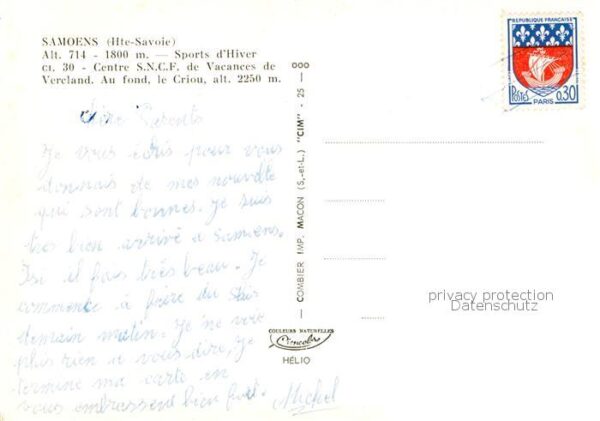 SAMOENS (Hte-Savoie)
Alt. 714 - 1800 m. — Sports d'Hiver
CI. 30 - Centre S.N.C.F. de Vacances de
Vercland. Au fond, le Criou, alt. 2250 m.
REPUBLIQUE FRANÇAISE
POSTES 0,30
PARIS
Parents
Je vous écris pour vous
donnais de mes nouvelle
qui sont bonnes. Je suis
tres bien arrivé a Samoens.
Isi il fais très beau. Je
commence à faire du skis
demain matin. Je ne voie
plus rien a vous dire, je
termine ma carte en
vous embrassent bien fort.
Michel
COMBIER IMP. MACON (S.-et-L.) "CIM" - 25 - 000
COULEURS NATURELLES
Cimcolor
HÉLIO
privacy protection
Datenschutz